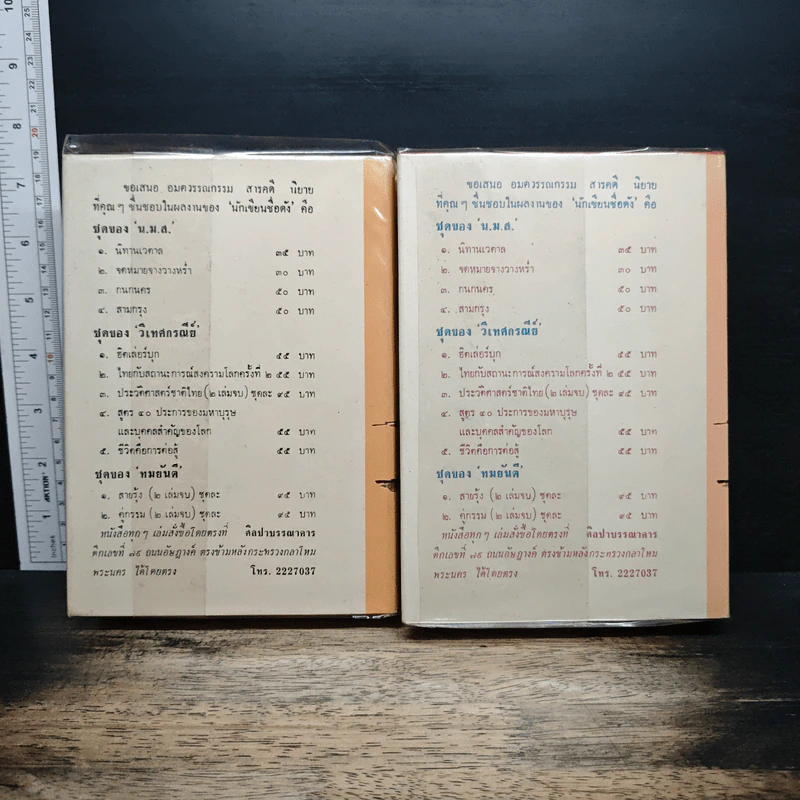 ขอเสนอ อมตวรรณกรรม สารคดี นิยาย
ที่คุณ ๆ ชื่นชอบในผลงานของ 'นักเขียนชื่อดัง' คือ
ชุดของ 'น.ม.ส.'
๑. นิทานเวตาล ๓๕ บาท
๒. จดหมายจางวางหร่ำ ๓๐ บาท
๓. กนกนคร ๕๐ บาท
๔. สามกรุง ๕๐ บาท
ชุดของ 'วิเทศกรณีย์'
๑. ฮิตเล่อร์บุก ๕๕ บาท
๒. ไทยกับสถานะการณ์สงครามโลกครั้งที่ ๒ ๕๕ บาท
๓. ประวัติศาสตร์ชาติไทย (๒ เล่มจบ) ชุดละ ๙๕ บาท
๔. สูตร ๔๐ ประการของมหาบุรุษ
และบุคคลสำคัญของโลก ๕๕ บาท
๕. ชีวิตคือการต่อสู้ ๕๕ บาท
ชุดของ 'ทมยันตี'
๑. สายรุ้ง (๒ เล่มจบ) ชุดละ ๙๕ บาท
๒. คู่กรรม (๒ เล่มจบ) ชุดละ ๙๕ บาท
หนังสือทุก ๆ เล่มสั่งซื้อโดยตรงที่ ศิลปาบรรณาคาร
ตึกเลขที่ ๗๙ ถนนอัษฎางค์ ตรงข้ามหลังกระทรวงกลาโหม
พระนคร ได้โดยตรง โทร. 2227037
ขอเสนอ อมตวรรณกรรม สารคดี นิยาย
ที่คุณ ๆ ชื่นชอบในผลงานของ 'นักเขียนชื่อดัง' คือ
ชุดของ 'น.ม.ส.'
๑. นิทานเวตาล ๓๕ บาท
๒. จดหมายจางวางหร่ำ ๓๐ บาท
๓. กนกนคร ๕๐ บาท
๔. สามกรุง ๕๐ บาท
ชุดของ 'วิเทศกรณีย์'
๑. ฮิตเล่อร์บุก ๕๕ บาท
๒. ไทยกับสถานะการณ์สงครามโลกครั้งที่ ๒ ๕๕ บาท
๓. ประวัติศาสตร์ชาติไทย (๒ เล่มจบ) ชุดละ ๙๕ บาท
๔. สูตร ๔๐ ประการของมหาบุรุษ
และบุคคลสำคัญของโลก ๕๕ บาท
๕. ชีวิตคือการต่อสู้ ๕๕ บาท
ชุดของ 'ทมยันตี'
๑. สายรุ้ง (๒ เล่มจบ) ชุดละ ๙๕ บาท
๒. คู่กรรม (๒ เล่มจบ) ชุดละ ๙๕ บาท
หนังสือทุก ๆ เล่มสั่งซื้อโดยตรงที่ ศิลปาบรรณาคาร
ตึกเลขที่ ๗๙ ถนนอัษฎางค์ ตรงข้ามหลังกระทรวงกลาโหม
พระนคร ได้โดยตรง โทร. 2227037